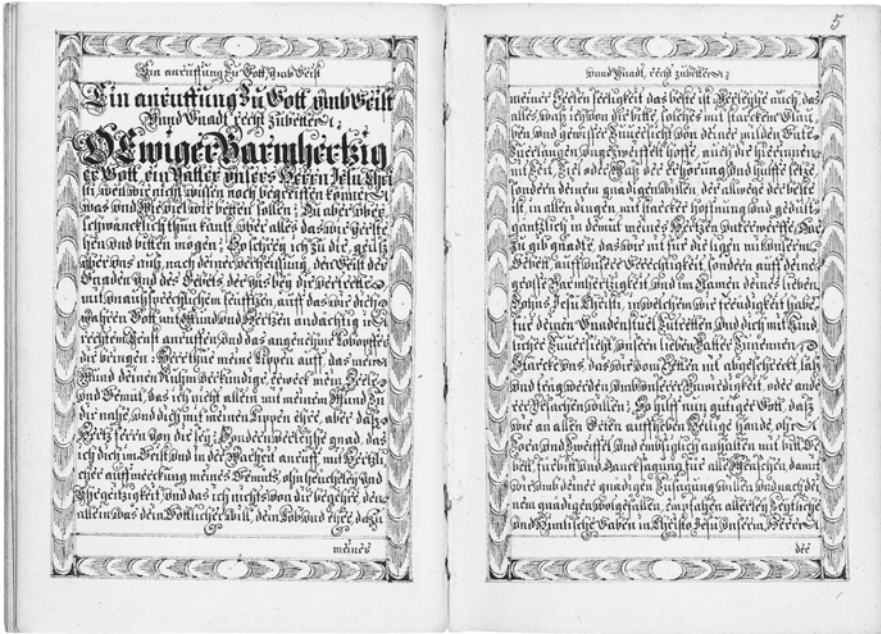 Ein anruffung zu Gott, umb Geist
Ein anruffung zu Gott umb Geist
Vnnd Gnadt recht zubetten:
O Ewiger Barmhertzig
er Gott, ein Vatter vnsers Herrn Jesu Chri
sti, weil wir nicht wissen noch begreiffen konnen
was vnd wie viel wir betten sollen: Du aber vber
schwencklich thun kanst, vber alles das wir verste
hen vnd bitten mögen: So schrey ich zu dir, geuß
vber vns auß, nach deiner verheissung, den Geist der
Gnaden vnd des Gebets, der vns bey dir vertrette
mit vnaußsprechlichem seufftzen, auff das wir dich
wahren Gott mit Mund vnd Hertzen andachtig in
rechtem Ernst anruffen vnd das angeneme Lobopffer
dir bringen: Herr thue meine Lippen auff, das mein
Mund deinen Ruhm verkundige, erweck mein Seele
vnd Gemut, das ich nicht allein mit meinem Mund zu
dir nahe, vnd dich mit meinen Lippen ehre, aber daß
Hertz ferrn von dir sey: Sondern verleyhe gnad, das
ich dich im Geist vnd in der Warheit anruff, mit Hertzli
cher auffmerckung meines Gemuts, ohn heucheley vnd
Ehrgeitzigkeit, vnd das ich nichts von dir begehre, den
allein was dein Gottlicher will, dein Lob vnd ehre, dazu
meines
5
vnnd Gnadt, recht zubetten:
meiner Seelen seeligkeit das beste ist. Verleyhe auch, das
alles, waß ich von dir bitte, solches mit starckem Glau
ben vnd gewisser Zuuersicht von deiner milden Gute
Zuerlangen vngezweiffelt hoffe, auch dir hierinnen
nit Zeit, Ziel oder Maß der erhorung vnd hulffe setze,
sondern deinem gnadigen willen, der allwege der beste
ist, in allen dingen, mit starcker hoffnung vnd gedult
gantzlich in demut meines Hertzen vnterwerffe,
zu gib gnade, das wir nit fur dir ligen mit vnserm
Gebett, auff vnsere Gerechtigkeit, sondern auff deine
grosse Barmhertzigkeit, vnd im Namen deines lieben
Sohns Jesu Christi, in welchem wir freudigkeit habe
fur deinen Gnadenstuel Zutretten, vnd dich mit Kind
licher Zuuersicht, vnsern lieben Vatter Zunennen:
Starcke vns, das wir vom Betten nit abgeschreckt, laß
vnd treg werden vmb vnserer Vnwirdigkeit, oder ande
rer Vrsachen willen: So hilff nun gutiger Gott, daß
wir an allen Orten auffheben Heilige hande, ohn
Zorn vnd Zweiffel, vnd embsiglich anhalten mit bitt Ge
bett, furbitt vnd Dancksagung fur alle Menschen, damit
wir vmb deiner gnadigen Zusagung willen vnd nach dei
nem gnadigen wolgefallen, empfahen allerley Zeytliche
vnd Himlische Gaben in Christo Jesu vnserm Herrn
der